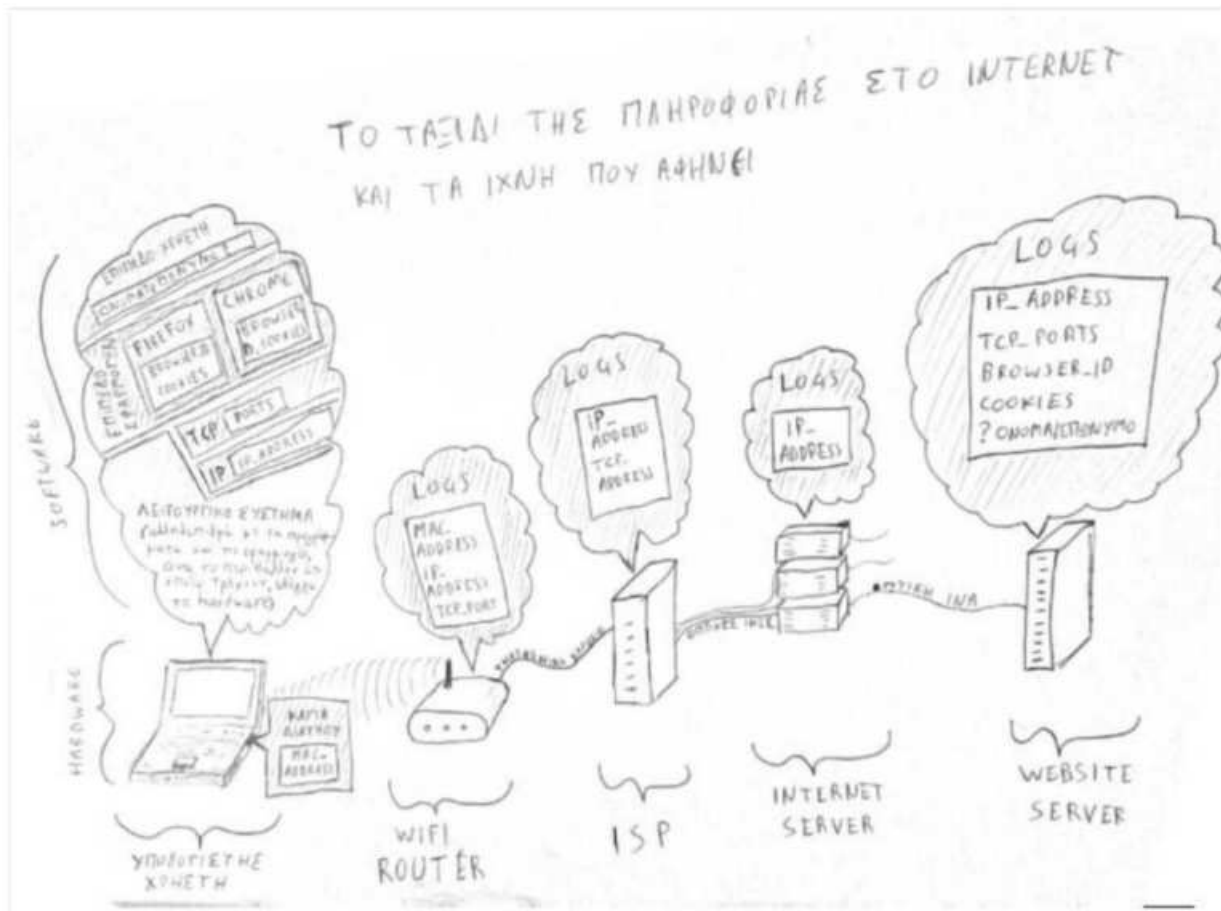 ΤΟ ΤΑΞΙΔΙ ΤΗΣ ΠΛΗΡΟΦΟΡΙΑΣ ΣΤΟ INTERNET
ΚΑΙ ΤΑ ΙΧΝΗ ΠΟΥ ΑΦΗΝΕΙ
SOFTWARE
ΕΠΙΠΕΔΟ ΧΡΗΣΤΗ
ΕΠΙΠΕΔΟ
ΕΦΑΡΜΟΓΩΝ
FIREFOX
BROWSER ID
COOKIES
CHROME
BROWSER
ID, COOKIES
TCP PORTS
IP IP_ADDRESS
ΛΕΙΤΟΥΡΓΙΚΟ ΣΥΣΤΗΜΑ
το hardware)
HARDWARE
ΚΑΡΤΑ
ΔΙΚΤΥΟΥ
MAC_
ADDRESS
ΥΠΟΛΟΓΙΣΤΗΣ
ΧΡΗΣΤΗ
LOGS
MAC_
ADDRESS
IP_
ADDRESS
TCP_PORT
WIFI
ROUTER
LOGS
IP_
ADDRESS
TCP_
ADDRESS
ISP
LOGS
IP_
ADDRESS
INTERNET
SERVER
ΟΠΤΙΚΗ ΙΝΑ
LOGS
IP_ADDRESS
TCP_PORTS
BROWSER_ID
COOKIES
? ΟΝΟΜΑ/ΕΠΩΝΥΜΟ
WEBSITE
SERVER